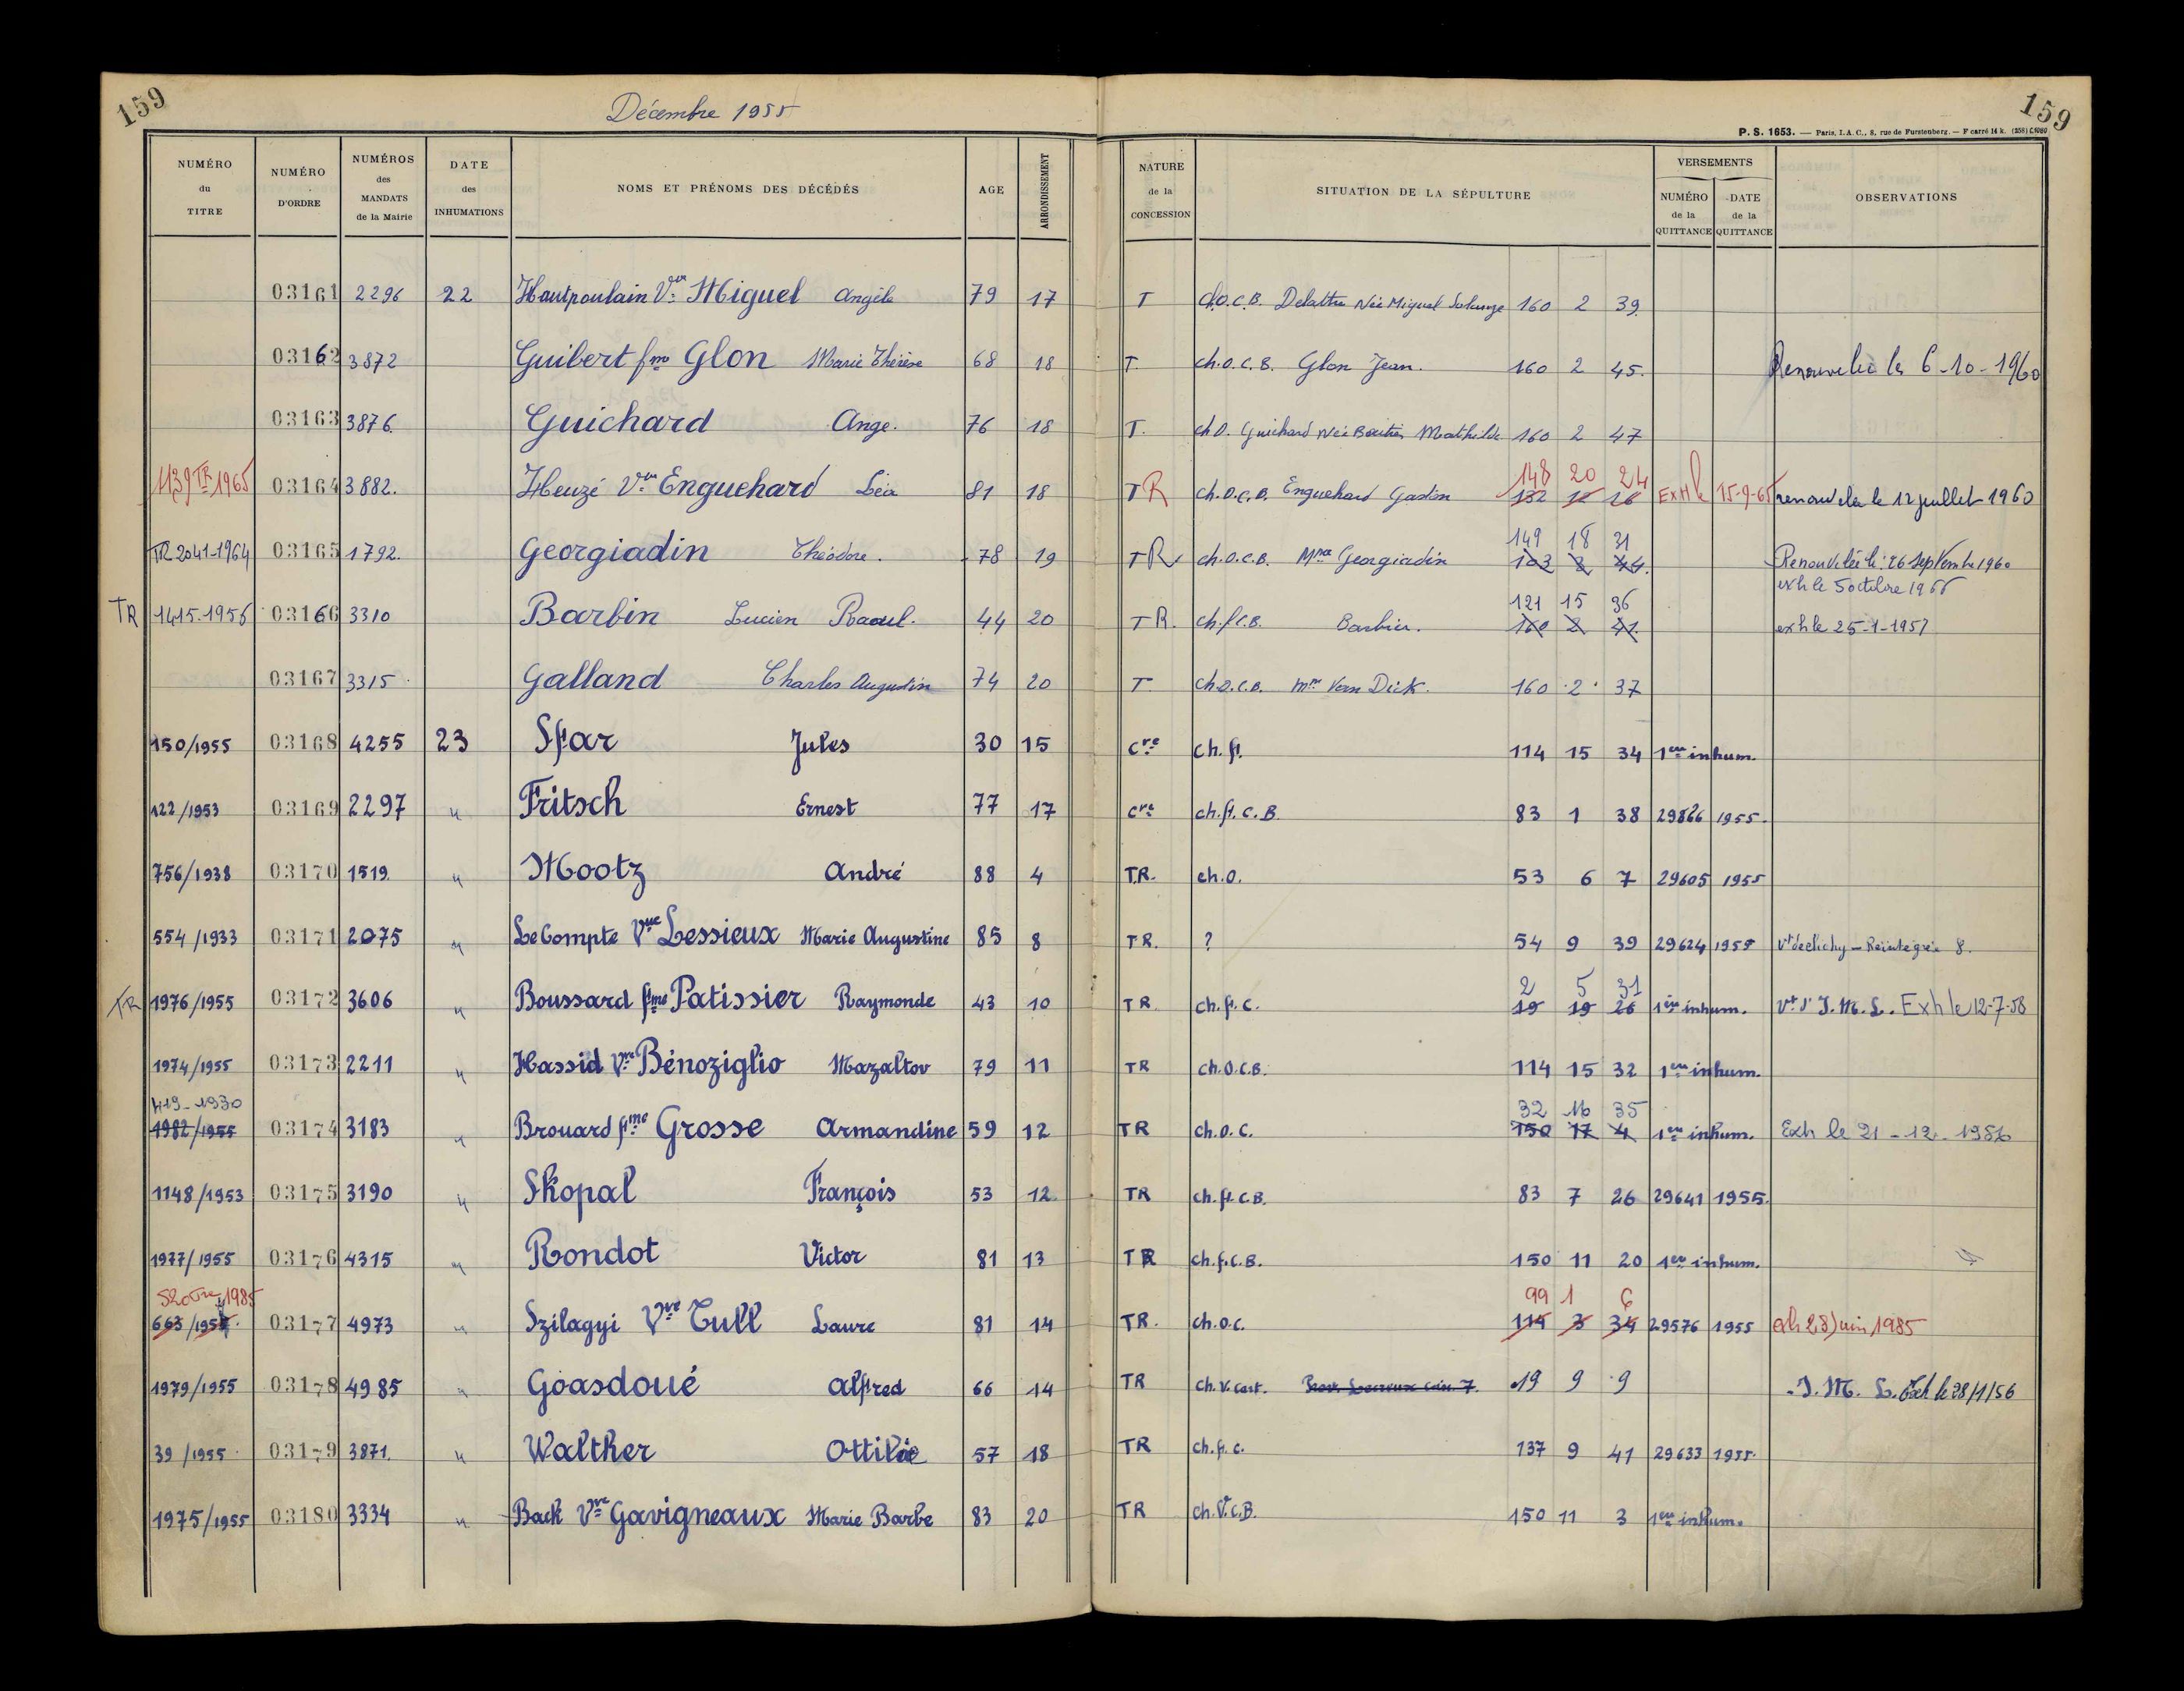 159
Décembre 1955
159
P. S. 1653. — Paris, I.A.C., 8, rue de Furstenberg. — F carré 14 k. (258)
NUMÉRO du TITRE
NUMÉRO D'ORDRE
NUMÉROS des MANDATS de la Mairie
DATE des INHUMATIONS
NOMS ET PRÉNOMS DES DÉCÉDÉS
AGE
ARRONDISSEMENT
NATURE de la CONCESSION
SITUATION DE LA SÉPULTURE
VERSEMENTS
NUMÉRO de la QUITTANCE
DATE de la QUITTANCE
OBSERVATIONS
03161 2296 22 Hautpoulain Vve Miguel Angèle 79 17 T ch.O.C.B. Delattre Née Miguel Solange 160 2 39.
03162 3872 Guibert fme Glon Marie Thérèse 68 18 T. ch.O.C.B. Glon Jean. 160 2 45. Renouvelée le 6-10-1960
03163 3876. Guichard Ange. 76 18 T. ch O. Guichard Née Mathilde 160 2 47
148 20 24
1139 TR 1965 03164 3882. Heuzé Vve Enguehard Léa 81 18 TR ch.O.C.B. Enguehard Gaston 132 12 26 Exh le 15-9-65 renouvelée le 12 juillet 1960
149 18 31
TR 2041-1964 03165 1792. Georgiadin Théodore. 78 19 TR ch.O.C.B. Mme Georgiadin 103 2 44. Renouvelée le 26 Septembre 1960
exh le 5 octobre 1966
121 15 36
TR 1415.1956 03166 3310 Barbin Lucien Raoul. 44 20 TR. ch.f.C.B. Barbin. 160 2 41. exh le 25-1-1957
03167 3315 Galland Charles Augustin 74 20 T ch O.C.B. Mme Van Dick. 160 2 37
150/1955 03168 4255 23 Sfar Jules 30 15 Cre ch. ft. 114 15 34 1ere inhum.
122/1953 03169 2297 " Fritsch Ernest 77 17 Cre ch.ft. C.B. 83 1 38 29866 1955.
756/1938 03170 1519. " Mootz André 88 4 TR. ch.O. 53 6 7 29605 1955
554/1933 03171 2075 " LeCompte Vve Lessieux Marie Augustine 85 8 TR. ? 54 9 39 29624 1955 Vt de Clichy – Réintégrée 8.
2 5 31
TR 1976/1955 03172 3606 " Boussard fme Patissier Raymonde 43 10 TR ch.ft. C. 19 19 26 1ère inhum. Vt d' I.M.L. Exh le 12-7-58
1974/1955 03173 2211 " Hassid Vve Bénoziglio Mazaltov 79 11 TR ch.O.C.B. 114 15 32 1ere inhum.
419-1930 32 16 35
1982/1955 03174 3183 " Brouard fme Grosse Armandine 59 12 TR ch.O.C. 150 17 4 1ere inhum. Exh le 21-12-1956
1148/1953 03175 3190 " Skopal François 53 12 TR ch.ft.C.B. 83 7 26 29641 1955.
1977/1955 03176 4315 " Rondot Victor 81 13 TR ch.f.C.B. 150 11 20 1ere inhum.
1985 99 1 6
663/ 03177 4973 " Szilagyi Vve Tull Laure 81 14 TR. ch.O.C. 114 3 34 29576 1955 exh 28 Juin 1985
1979/1955 03178 4985 " Goasdoué Alfred 66 14 TR ch.V. cast. 19 9 9 I.M.L. Exh le 28/1/56
39/1955 03179 3871. " Walther Ottilie 57 18 TR ch.f.C. 137 9 41 29633 1955.
1975/1955 03180 3334 " Back Vve Gavigneaux Marie Barbe 83 20 TR ch.V.C.B. 150 11 3 1ere inhum.